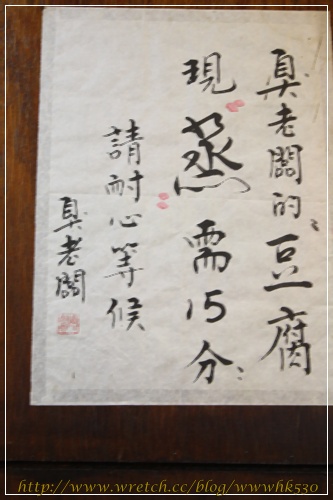 臭老闆的豆腐
現蒸需15分
請耐心等候
臭老闆
http://www.wretch.cc/blog/wwwhk530